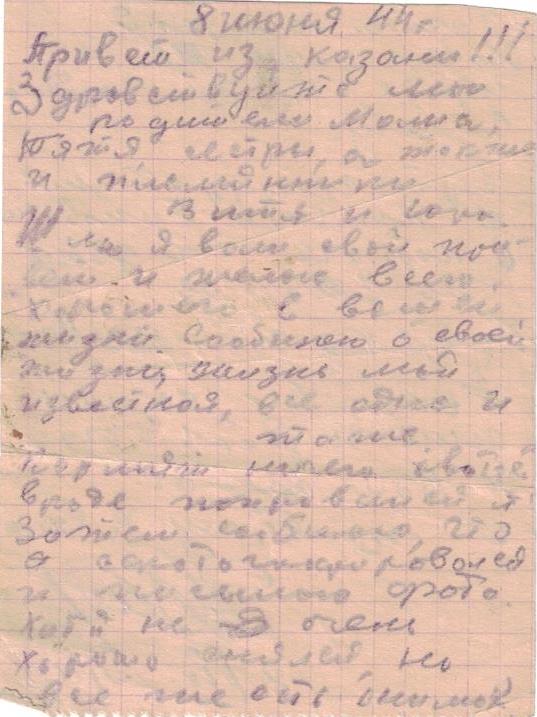 8 июня 44 г
Привет из казани!!!
Здровствуйте мои
родители Мама,
Тятя сестры, а также
и племянники
Витя и
Шлю я вам свой при
вет и желаю всего
хорошего в вашей
жизни Сообщаю о своей
жизни, жизнь моя
известная, все одно и
тоже
Кормят ничего
вроде поправился я
Затем сообщаю, что
я сфотографировался
и посылаю фото
Хотя не очень
хорошо снялся, но
все же есть снимок